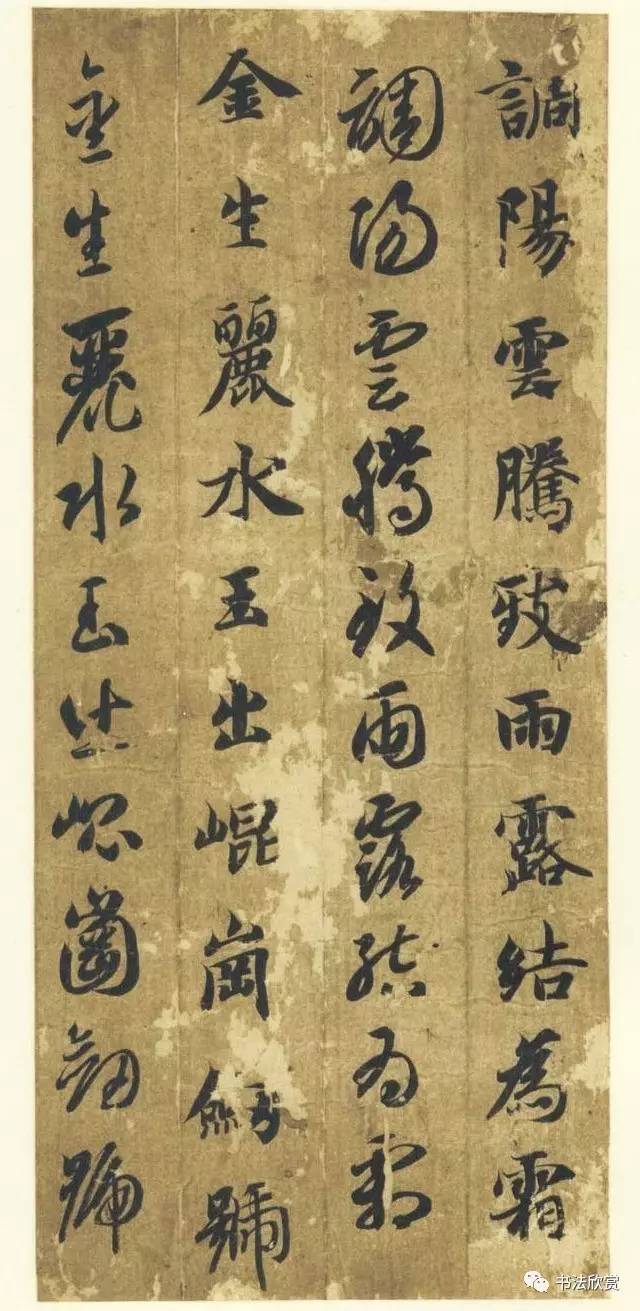 調陽雲騰致雨露結為霜
調陽雲騰致雨露結為霜
金生麗水玉出崐崗劔號
金生麗水玉出崐崗劔號
书法欣赏